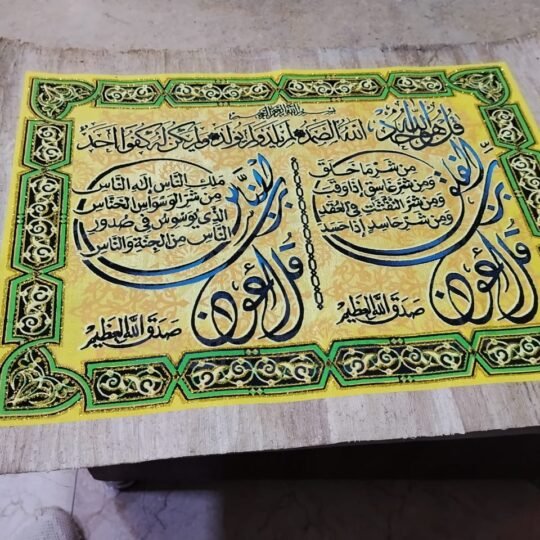 بسم الله الرحمن الرحيم
قل هو الله أحد الله الصمد لم يلد ولم يولد ولم يكن له كفوا أحد
قل أعوذ برب الفلق
من شر ما خلق
ومن شر غاسق إذا وقب
ومن شر النفثت في العقد
ومن شر حاسد إذا حسد
صدق الله العظيم
قل أعوذ برب الناس
ملك الناس إله الناس
من شر الوسواس الخناس
الذي يوسوس في صدور
الناس من الجنة والناس
صدق الله العظيم